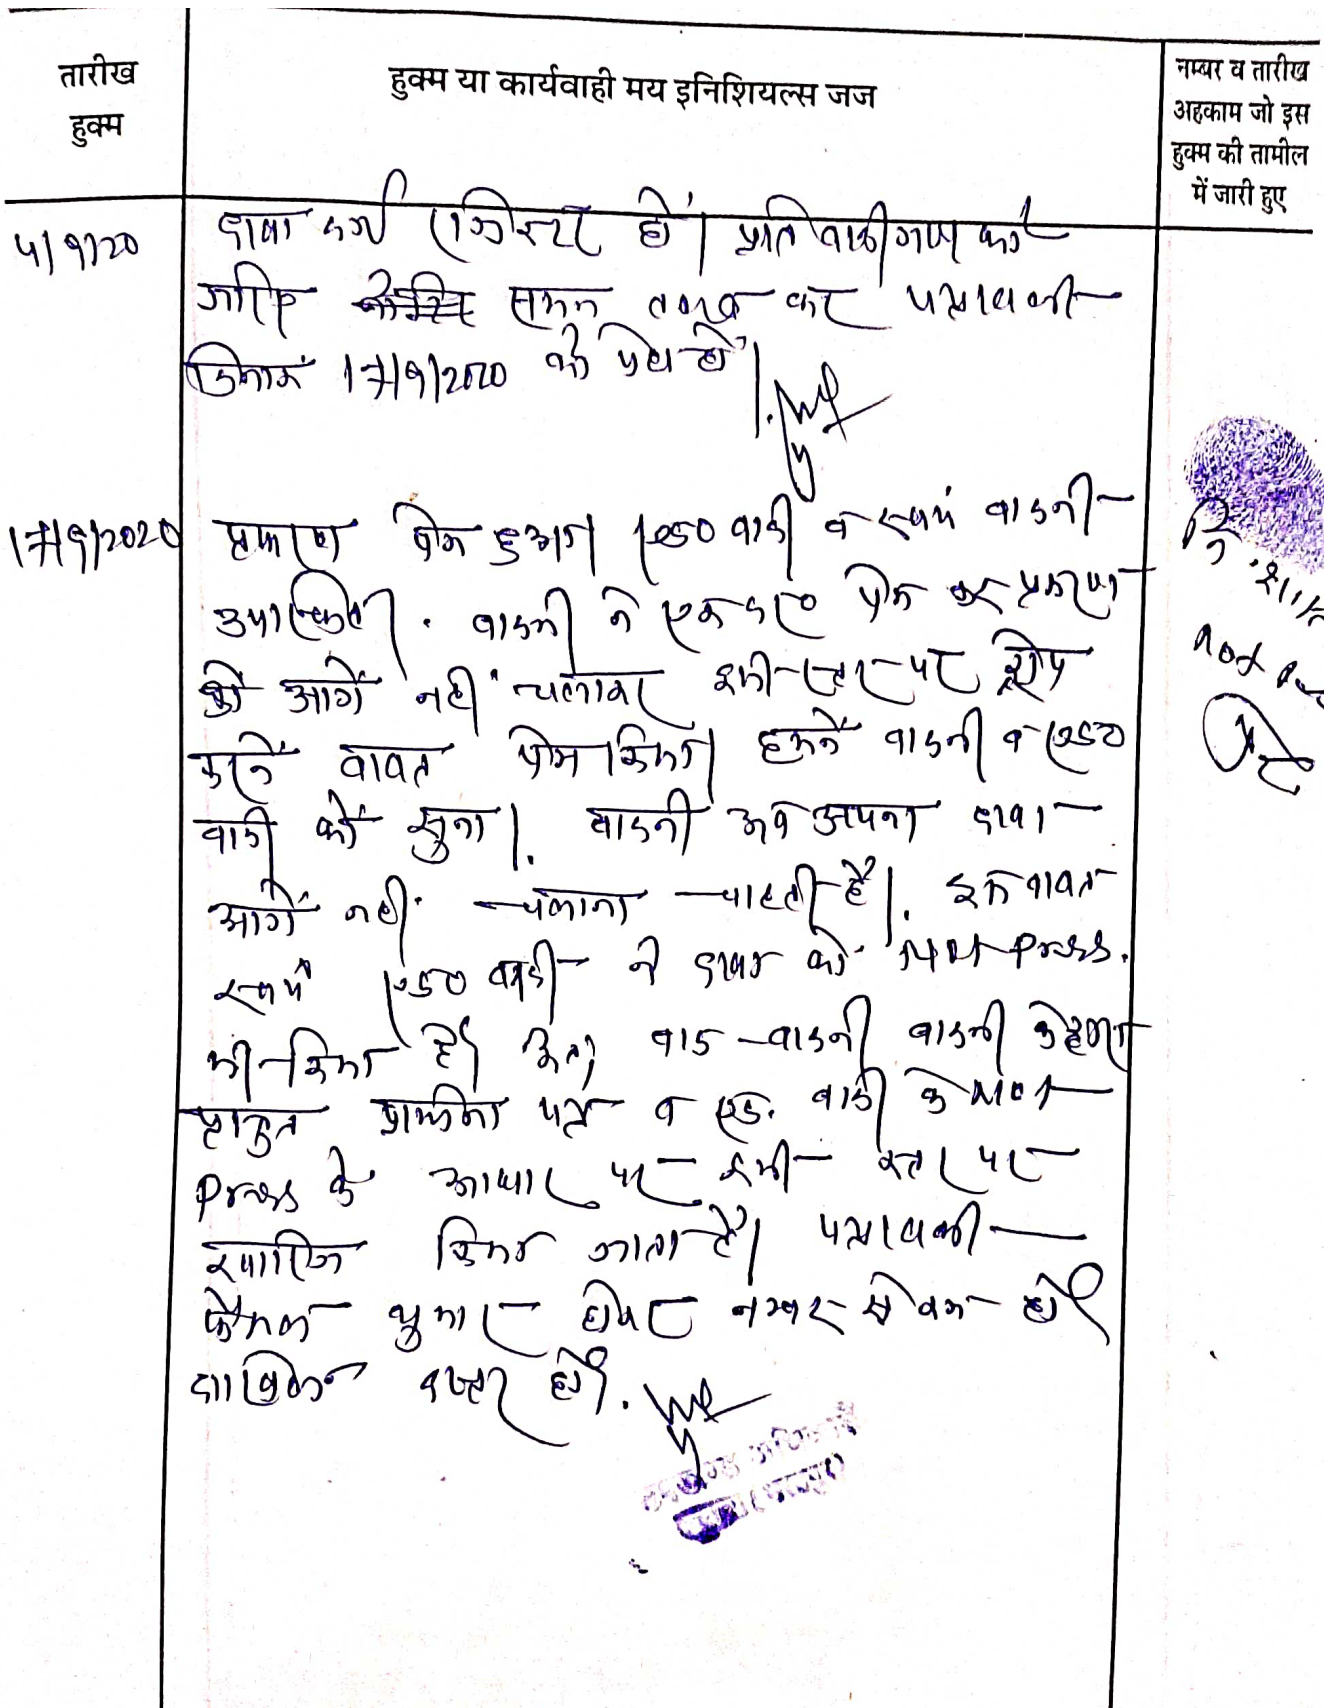 तारीख
हुक्म
हुक्म या कार्यवाही मय इनिशियल्स जज
नम्बर व तारीख
अहकाम जो इस
हुक्म की तामील
में जारी हुए
4/9/20
दावा दर्ज रजिस्टर हो। प्रतिवादीगण को
जरिए समन तलब कर पत्रावली
दिनांक 17/9/2020 को पेश हो।
17/9/2020
प्रकरण पेश हुआ। एड० वादी व स्वयं वादनी
उपस्थित। वादनी ने एक द०प्रा० पेश कर प्रकरण
को आगे नहीं चलाकर इसी स्तर पर ड्रोप
करने बाबत पेश किया। हमने वादनी व एड०
वादी को सुना। वादनी अब अपना दावा
आगे नहीं चलाना चाहती है। इस बाबत
स्वयं एड० वादी ने दावा को Not Press.
भी किया है। अतः वाद वादनी वादनी के द्वारा
प्रस्तुत प्रार्थना पत्र व एड. वादी के Not
Press के आधार पर इसी स्तर पर
खारिज किया जाता है। पत्रावली
फैसल शुमार होकर नम्बर से कम हो
दाखिल दफ्तर हो।
नि.
Not